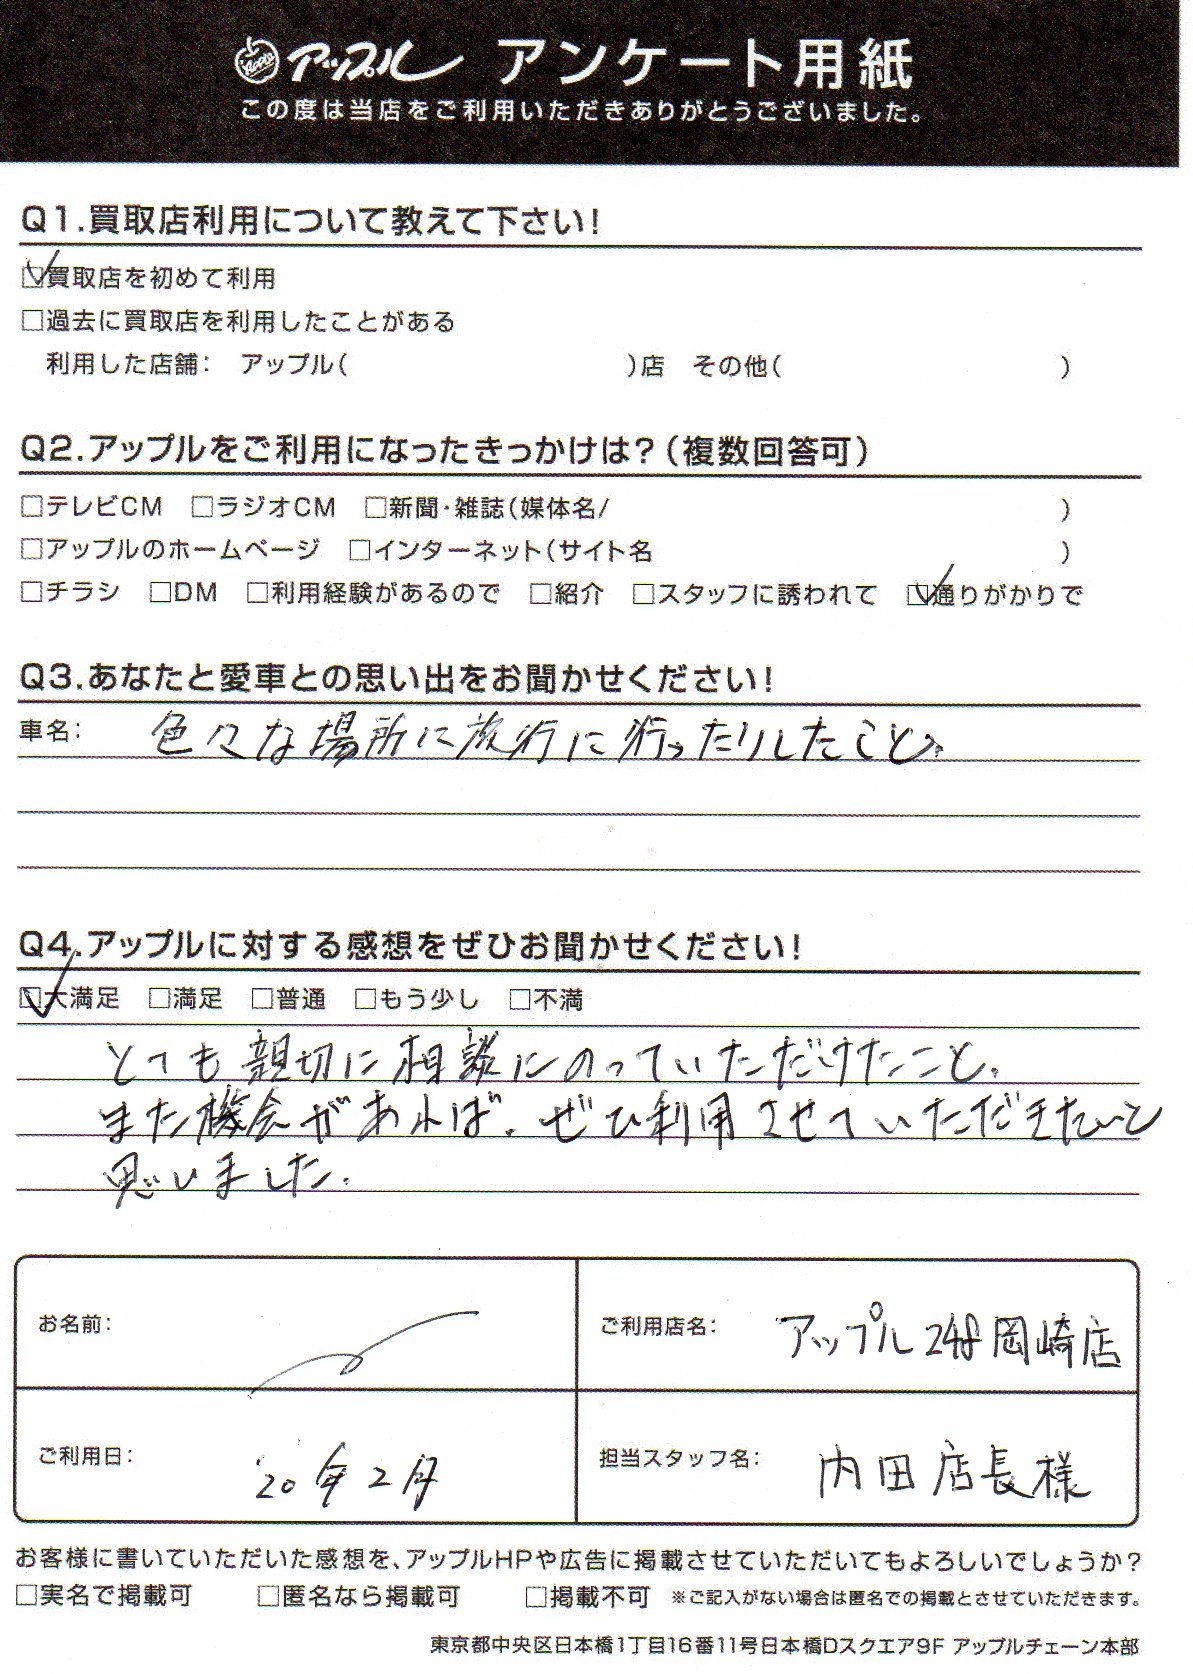 Apple アップル アンケート用紙
この度は当店をご利用いただきありがとうございました。
Q1.買取店利用について教えて下さい!
□買取店を初めて利用
□過去に買取店を利用したことがある
利用した店舗： アップル( )店 その他( )
Q2.アップルをご利用になったきっかけは?(複数回答可)
□テレビCM □ラジオCM □新聞・雑誌(媒体名/ )
□アップルのホームページ □インターネット(サイト名 )
□チラシ □DM □利用経験があるので □紹介 □スタッフに誘われて □通りがかりで
Q3.あなたと愛車との思い出をお聞かせください!
車名： 色々な場所に旅行に行ったりしたこと。
Q4.アップルに対する感想をぜひお聞かせください!
□大満足 □満足 □普通 □もう少し □不満
とても親切に相談にのっていただけたこと。
また機会があれば、ぜひ利用させていただきたいと
思いました。
お名前： ご利用店名： アップル248岡崎店
ご利用日： '20年2月 担当スタッフ名： 内田店長様
お客様に書いていただいた感想を、アップルHPや広告に掲載させていただいてもよろしいでしょうか?
□実名で掲載可 □匿名なら掲載可 □掲載不可 ※ご記入がない場合は匿名での掲載とさせていただきます。
東京都中央区日本橋1丁目16番11号日本橋Dスクエア9F アップルチェーン本部